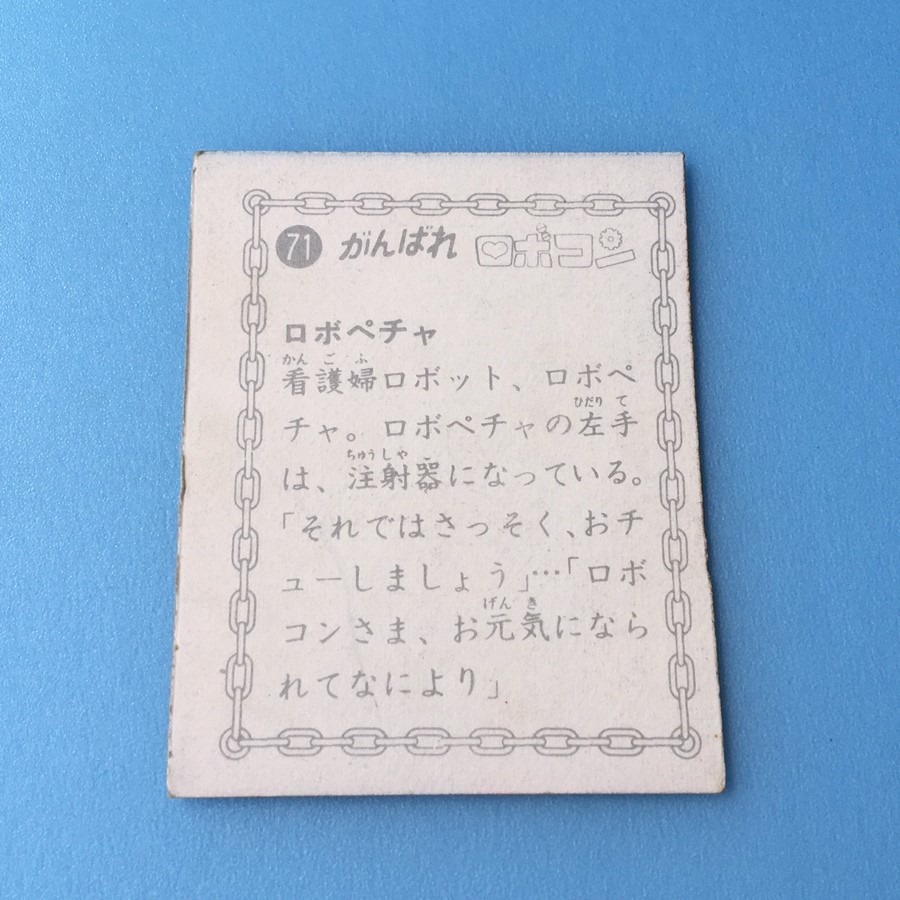 71 がんばれ ロボコン
ロボペチャ
かんごふ
看護婦ロボット、ロボペ
ひだりて
チャ。ロボペチャの左手
ちゅうしゃ
は、注射器になっている。
「それではさっそく、おチ
ューしましょう」…「ロボ
げんき
コンさま、お元気になら
れてなにより」